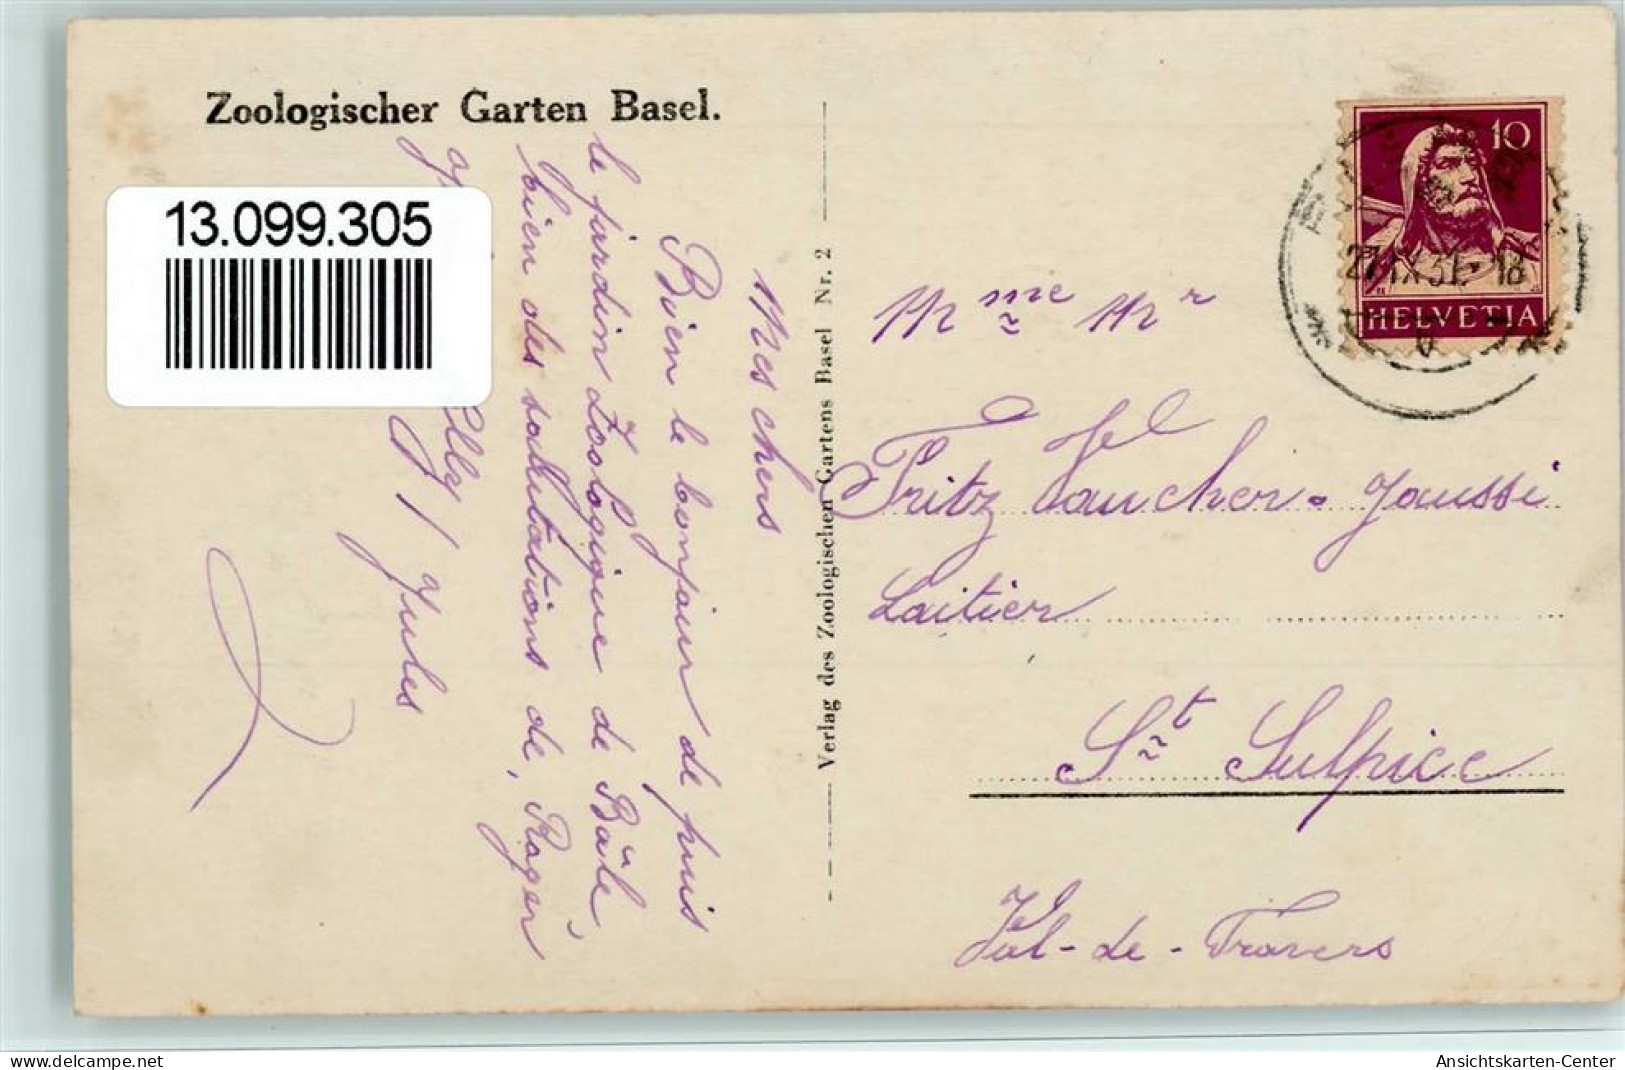 Zoologischer Garten Basel.
13.099.305
Mes chers
Bien le bonjour de puis
le jardin Zoologique de Bâle,
bien des salutations de, Roger
Elly
Jules
Verlag des Zoologischen Gartens Basel Nr. 2
Mme Mr
Fritz Vaucher-Jaussi
Laitier
St Sulpice
Val-de-Travers
10
HELVETIA
27.IX.31. 18
delcampe.net
Ansichtskarten-Center